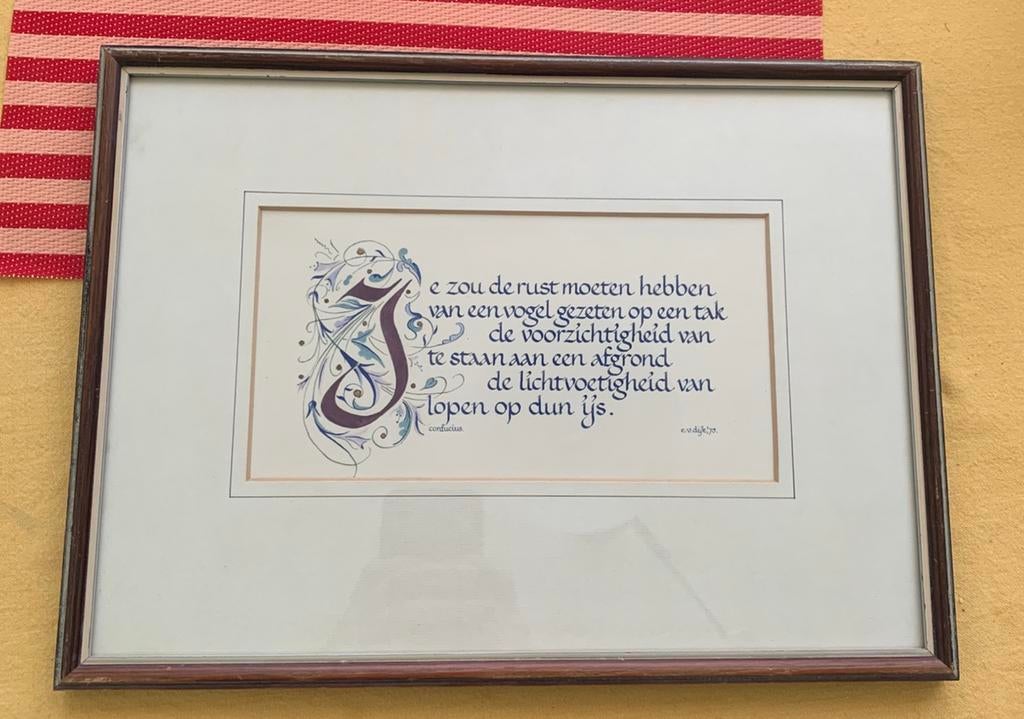 Je zou de rust moeten hebben
van een vogel gezeten op een tak
de voorzichtigheid van
te staan aan een afgrond
de lichtvoetigheid van
lopen op dun ijs.
confucius.
c.v.dijk.'73.